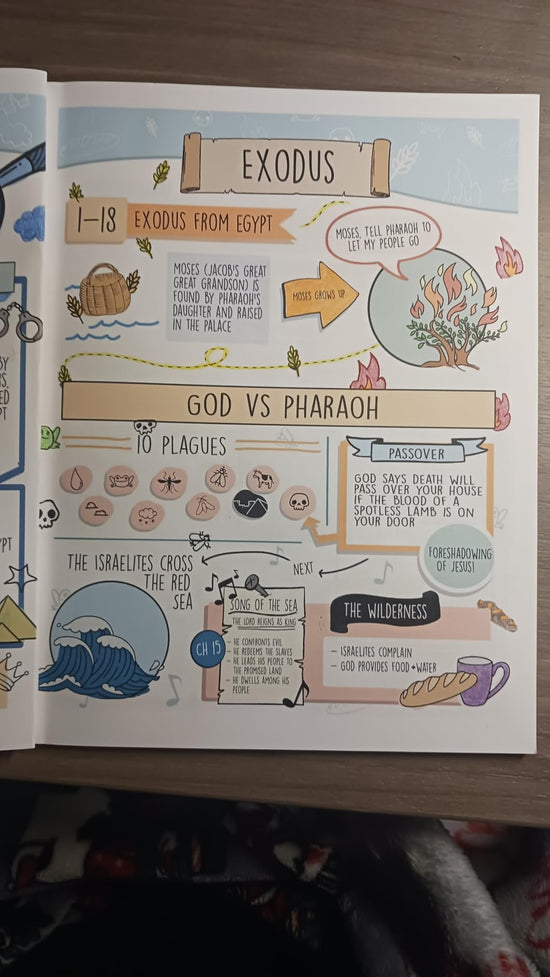 EXODUS
1-18
EXODUS FROM EGYPT
MOSES, TELL PHARAOH TO
LET MY PEOPLE GO
MOSES (JACOB'S GREAT
GREAT GRANDSON) IS
FOUND BY PHARAOH'S
DAUGHTER AND RAISED
IN THE PALACE
MOSES GROWS UP
GOD VS PHARAOH
10 PLAGUES
PASSOVER
GOD SAYS DEATH WILL
PASS OVER YOUR HOUSE
IF THE BLOOD OF A
SPOTLESS LAMB IS ON
YOUR DOOR
FORESHADOWING
OF JESUS!
NEXT
THE ISRAELITES CROSS
THE RED
SEA
SONG OF THE SEA
THE LORD REIGNS AS KING
CH 15
- HE CONFRONTS EVIL
- HE REDEEMS THE SLAVES
- HE LEADS HIS PEOPLE TO
THE PROMISED LAND
- HE DWELLS AMONG HIS
PEOPLE
THE WILDERNESS
- ISRAELITES COMPLAIN
- GOD PROVIDES FOOD + WATER